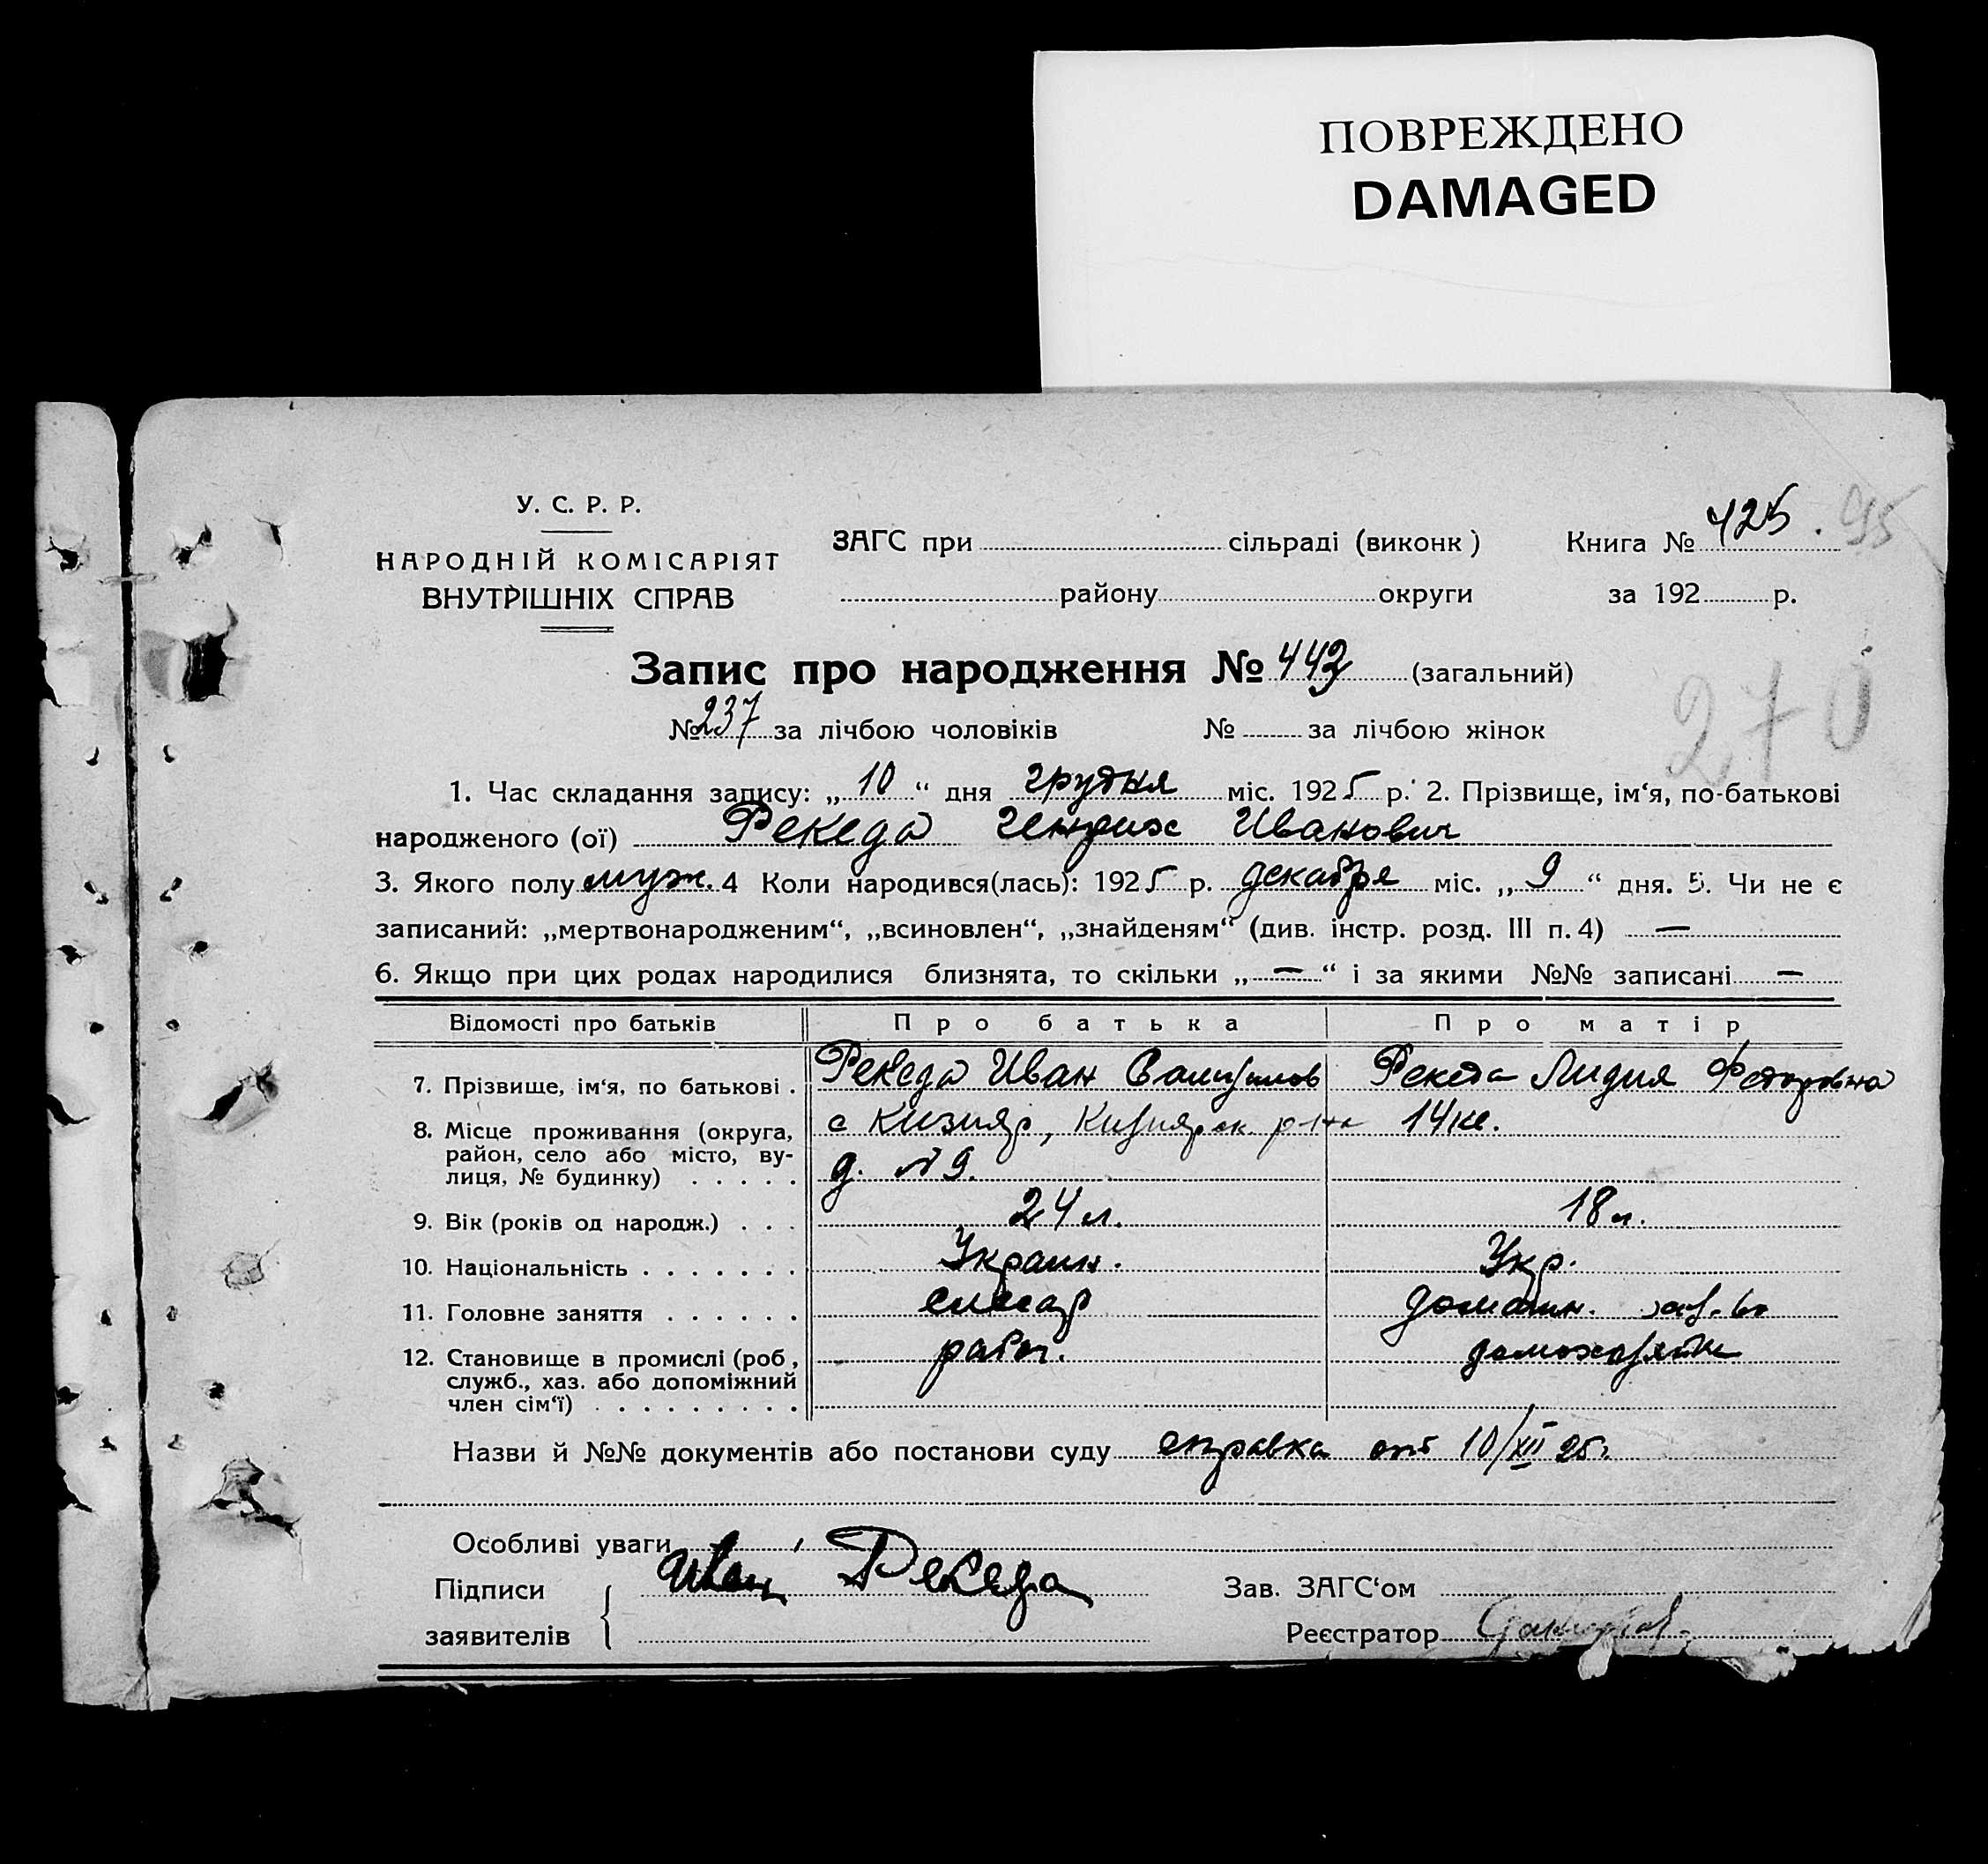 ПОВРЕЖДЕНО
DAMAGED
У. С. Р. Р.
НАРОДНІЙ КОМІСАРІЯТ
ВНУТРІШНІХ СПРАВ
ЗАГС при сільраді (виконк)
району округи
Книга № 425. 95
за 192 р.
Запис про народження № 442 (загальний)
№ 237 за лічбою чоловіків № за лічбою жінок
270
1. Час складання запису: „10“ дня грудня міс. 1925 р. 2. Прізвище, ім‘я, по-батькові
народженого (ої) Рекеда Генрих Иванович
3. Якого полу муж. 4 Коли народився(лась): 1925 р. декабря міс. „9“ дня. 5. Чи не є
записаний: „мертвонародженим“, „всиновлен“, „знайденям“ (див. інстр. розд. III п. 4) —
6. Якщо при цих родах народилися близнята, то скільки „—“ і за якими №№ записані —
Відомості про батьків Про батька Про матір
7. Прізвище, ім‘я, по батькові . Рекеда Иван Рекеда Лидия Федоровна
8. Місце проживання (округа, с Кизияр, Кизиярск. р-на
район, село або місто, ву-
лиця, № будинку) . . . . . д. №9.
9. Вік (років од народж.) . . . 24 л. 18 л.
10. Національність . . . . . . . Украин. Укр.
11. Головне заняття . . . . . . слесар домашн.
12. Становище в промислі (роб., рабоч. домохозяйка
служб., хаз. або допоміжний
член сім‘ї) . . . . . . . . .
Назви й №№ документів або постанови суду справка от 10/XII 25г.
Особливі уваги
Підписи Иван Рекеда
заявителів
Зав. ЗАГС‘ом
Реєстратор